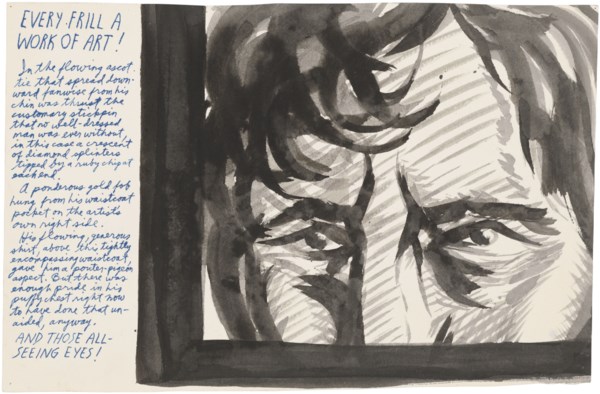 EVERY FRILL A
WORK OF ART!
In the flowing ascot
tie that spread down-
ward fanwise from his
chin was thrust the
customary stickpin
that no well-dressed
man was ever without,
in this case a crescent
of diamond splinters
tipped by a ruby chip at
each end.
A ponderous gold fob
hung from his waistcoat
pocket on the artists
own right side.
His flowing, generous
shirt, above this tightly
encompassing waistcoat,
gave him a pouter-pigeon
aspect. But there was
enough pride in his
puffy chest right now
to have done that un-
aided, anyway.
AND THOSE ALL-
SEEING EYES!